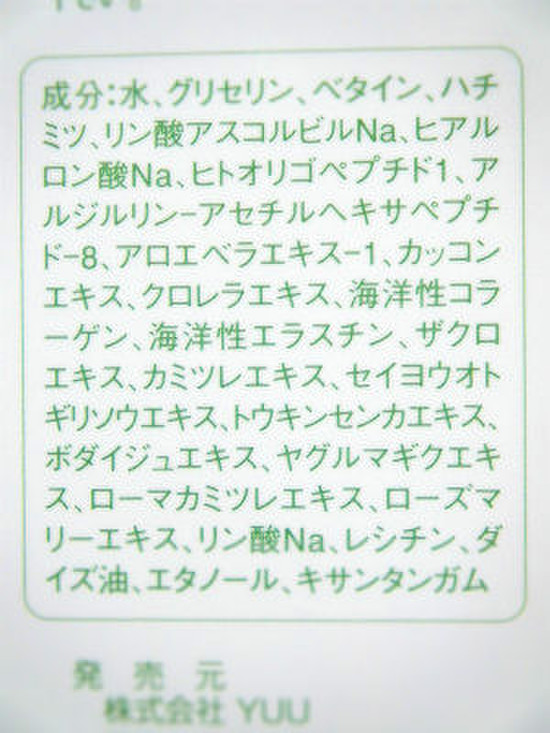 成分:水、グリセリン、ベタイン、ハチ
ミツ、リン酸アスコルビルNa、ヒアル
ロン酸Na、ヒトオリゴペプチド1、ア
ルジルリン-アセチルヘキサペプチ
ド-8、アロエベラエキス-1、カッコン
エキス、クロレラエキス、海洋性コラ
ーゲン、海洋性エラスチン、ザクロ
エキス、カミツレエキス、セイヨウオト
ギリソウエキス、トウキンセンカエキス、
ボダイジュエキス、ヤグルマギクエキ
ス、ローマカミツレエキス、ローズマ
リーエキス、リン酸Na、レシチン、ダ
イズ油、エタノール、キサンタンガム
発売元
株式会社 YUU